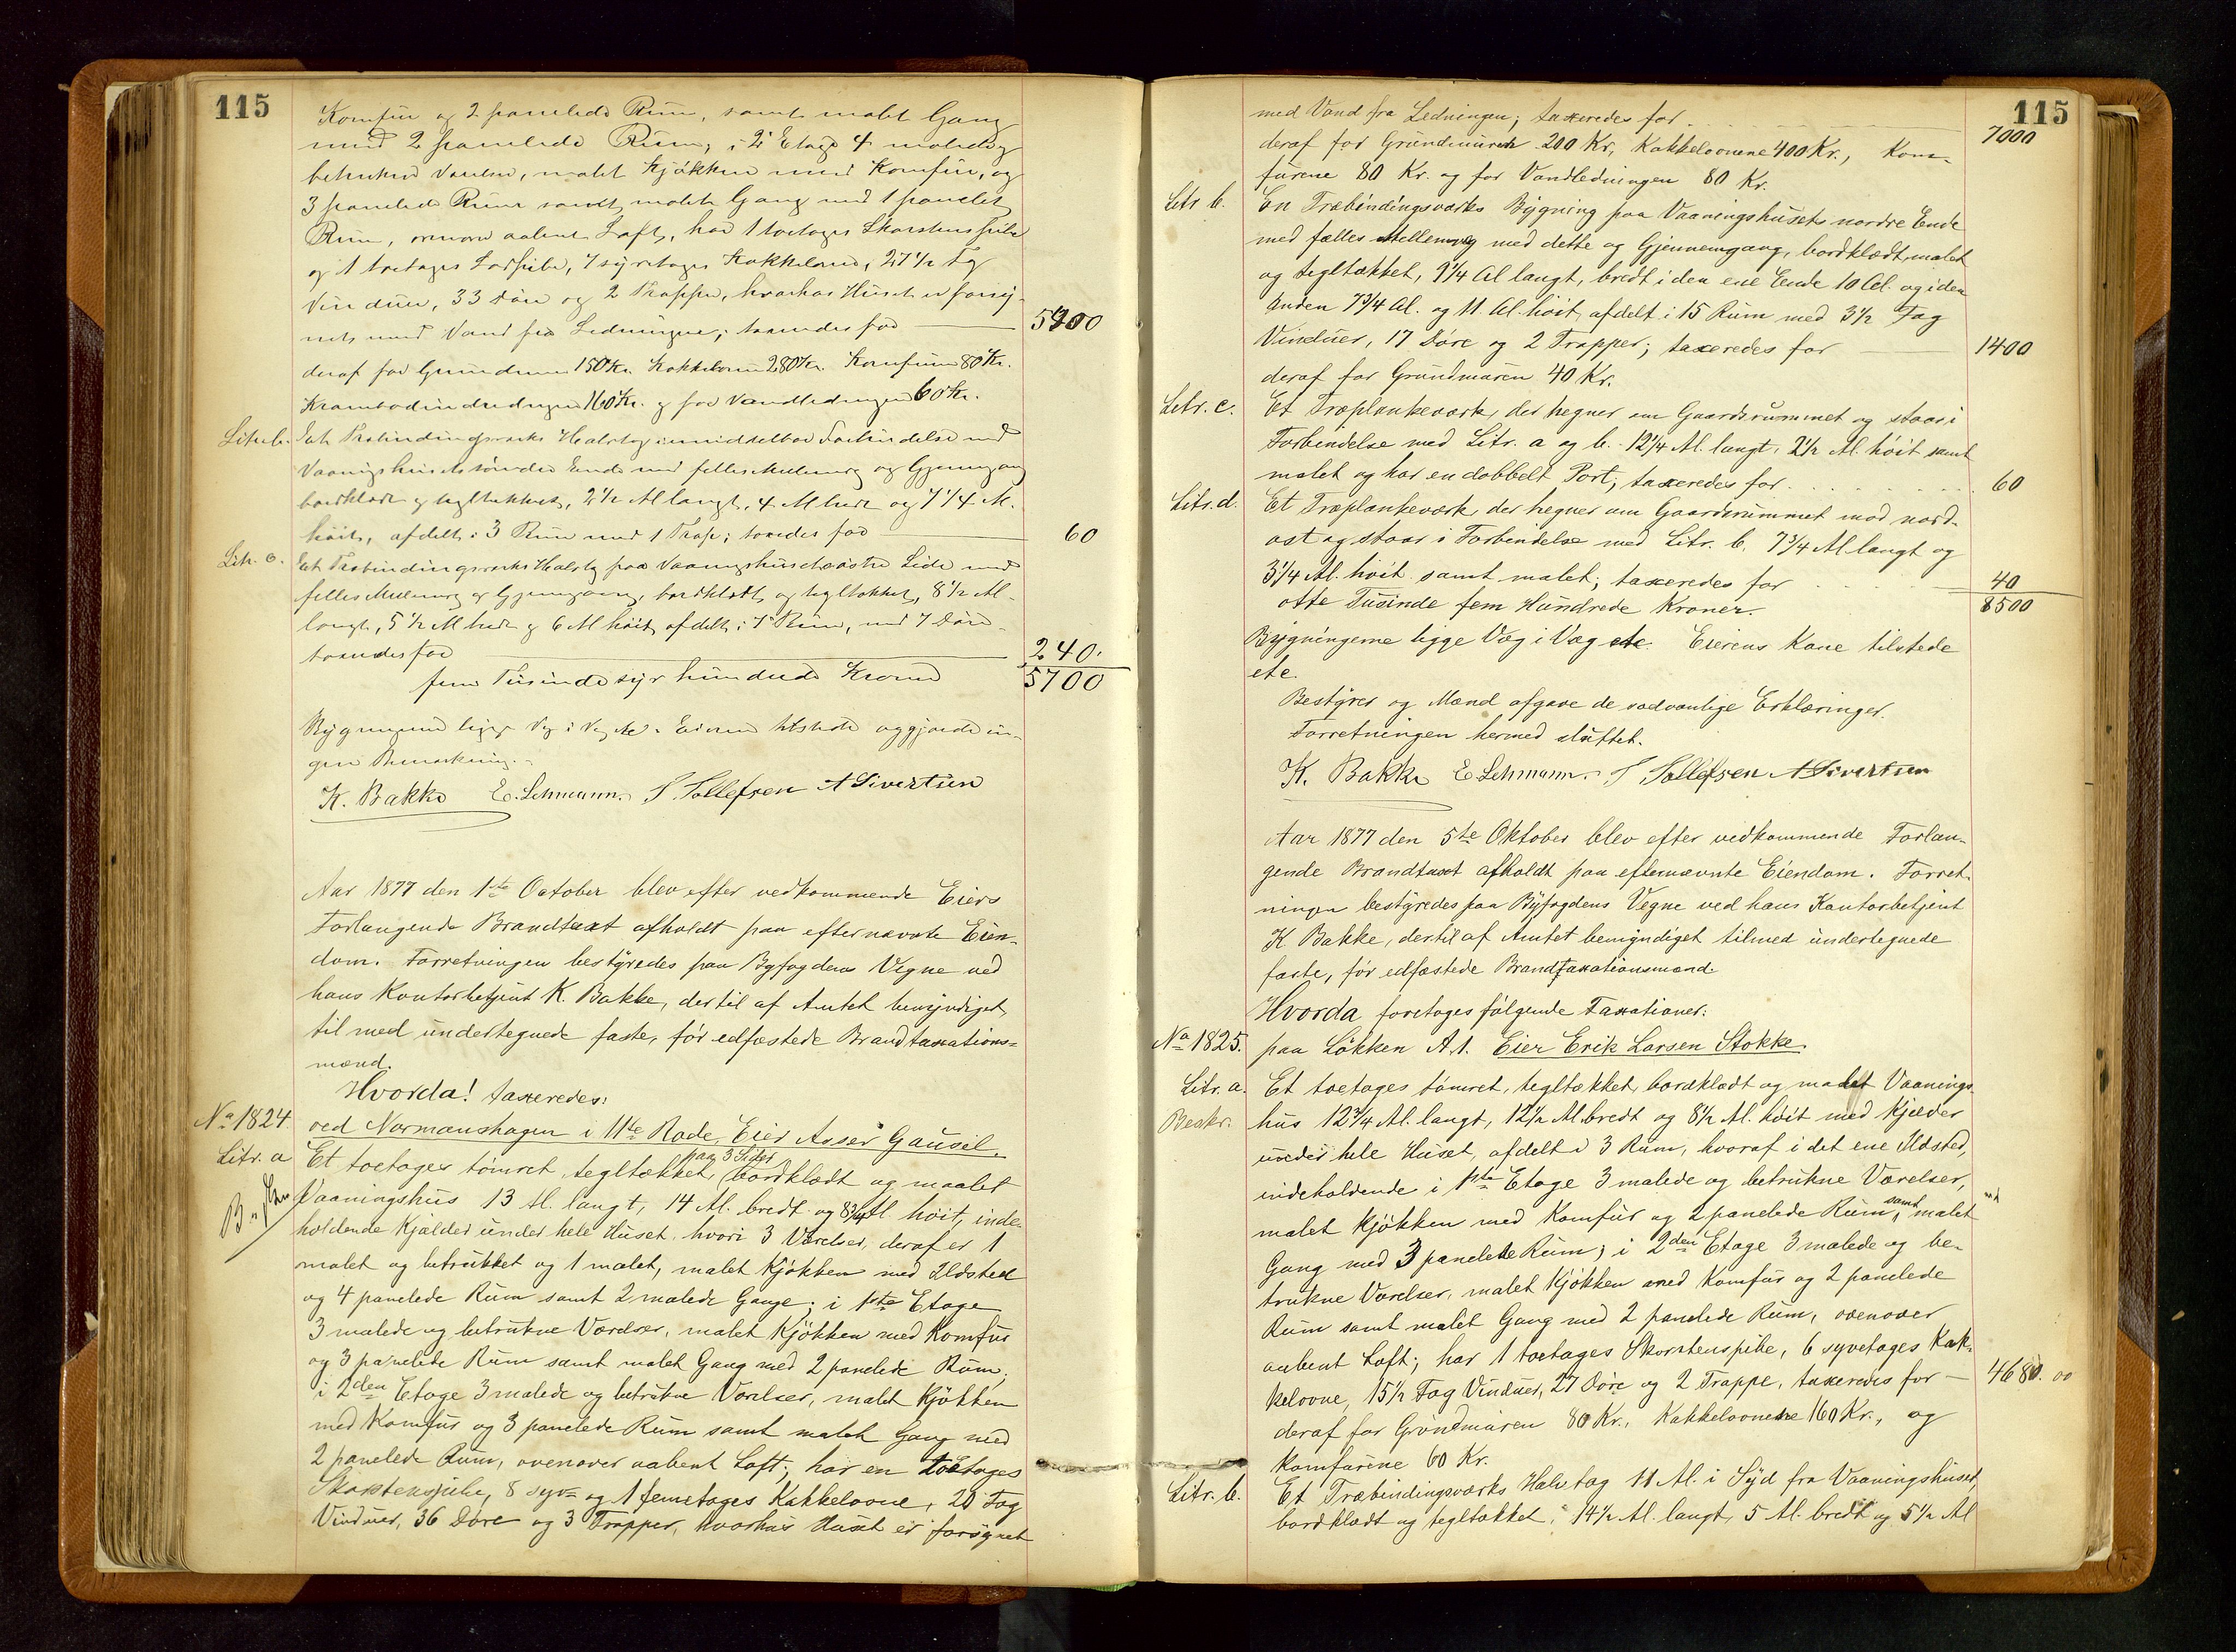 115
Komfur og 2 panelede Rum, samt malet Gang
med 2 panelede Rum, i 2 Etage 4 malede og
betrukne Værelser, malet Kjøkken med Komfur, og
3 panelede Rum samt malet Gang med 1 panelet
Rum, ovenover aabent Loft, har 1 toetages Skorstenspibe
og 1 toetages, 7 syvetages Kakkelovne, 27 1/2 Fag
Vinduer, 33 Døre og 2 Trapper, hvorhos Huset er forsy-
net med Vand fra Ledningen; taxeredes for 5400
deraf for Grundmuren 150 Kr. Kakkelovnene 280 Kr. Komfurene 80 Kr.
Krambodindredningen 160 Kr. og for Vandledningen 60 Kr.
Litr. b. Et Træbindingsværks Halvtag i umiddelbar Forbindelse med
Vaaningshusets søndre Ende med fælles Mellemvæg og Gjennemgang
bordklædt og tegltækket, 2 1/2 Al langt, 4 Al bredt og 7 1/4 Al.
høit, afdelt i 3 Rum med 1 Trap; taxeredes for 60
Litr. c. Et Træbindingsværks Halvtag paa Vaaningshusets østre Side med
fælles Mellemvæg og Gjennemgang, bordklædt og tegltækket, 8 1/2 Al
langt, 5 1/2 Al bredt og 6 Al høit, afdelt i Rum, med 7 Døre
taxeredes for 240.
fem Tusinde syv hundrede Kroner 5700
Bygningerne ligge Væg i Væg etc. Eieren tilstede og gjorde in-
gen Bemærkning.
K. Bakke E. Lehmann. T. Tollefsen A Sivertsen
Aar 1877 den 1ste October blev efter vedkommende Eiers
Forlangende Brandtaxt afholdt paa efternævnte Eien-
dom. Forretningen bestyredes paa Byfogdens Vegne ved
hans Kontorbetjent K. Bakke, dertil af Amtet bemyndiget,
tilmed undertegnede faste, før edfæstede Brandtaxations-
mænd.
Hvorda! taxeredes:
No 1824. ved Normanshagen i 11te Rode, Eier Asser Gausel.
paa 3 Sider
Litr. a Et toetages tømret, tegltækket, bordklædt og maalet
Vaaningshus 13 Al. langt, 14 Al. bredt og 8 3/4 Al. høit, inde-
holdende Kjælder under hele Huset, hvori 3 Værelser, deraf er 1
malet og betrukket og 1 malet, malet Kjøkken med Ildsted
og 4 panelede Rum samt 2 malede Gange; i 1ste Etage
3 malede og betrukne Værelser, malet Kjøkken med Komfur
og 3 panelede Rum samt malet Gang med 2 panelede Rum;
i 2den Etage 3 malede og betrukne Værelser, malet Kjøkken
med Komfur og 3 panelede Rum samt malet Gang med
2 panelede Rum, ovenover aabent Loft; har en toetages
Skorstenspibe, 8 syv- og 1 femetages Kakkelovne, 20 Fag
Vinduer, 36 Døre og 3 Trapper, hvorhos Huset er forsynet
115
med Vand fra Ledningen; taxeredes for 7000
deraf for Grundmuren 200 Kr, Kakkelovnene 400 Kr., Kom-
furene 80 Kr. og for Vandledningen 80 Kr.
Litr b. En Træbindingsværks Bygning paa Vaaningshusets nordre Ende
med fælles Mellemvæg med dette og Gjennemgang, bordklædt, malet
og tegltækket, 9 1/4 Al langt, bredt i den ene Ende 10 Al. og i den
Anden 7 3/4 Al. og 11 Al. høit, afdelt i 15 Rum med 3 1/2 Fag
Vinduer, 17 Døre og 2 Trapper; taxeredes for 1400
deraf for Grundmuren 40 Kr.
Litr. c. Et Træplankeværk, der hegner om Gaardsrummet og staar i
Forbindelse med Litr. a og b. 12 1/4 Al. langt, 2 1/2 Al. høit samt
malet og har en dobbelt Port; taxeredes for 60
Litr. d. Et Træplankeværk, der hegner om Gaardsrummet mod nord-
ost og staar i Forbindelse med Litr. b. 7 3/4 Al langt og
3 1/4 Al. høit samt malet; taxeredes for 40
otte Tusinde fem Hundrede Kroner. 8500
Bygningerne ligge Væg i Væg etc. Eierens Kone tilstede
etc.
Bestyrer og Mænd afgave de sædvanlige Erklæringer.
Forretningen hermed sluttet.
K. Bakke E Lehmann. T. Tollefsen A Sivertsen
Aar 1877 den 5te Oktober blev efter vedkommende Forlan-
gende Brandtaxt afholdt paa efternævnte Eiendom. Forret-
ningen bestyredes paa Byfogdens Vegne ved hans Kontorbetjent
K Bakke, dertil af Amtet bemyndiget tilmed undertegnede
faste, før edfæstede Brandtaxationsmænd.
Hvorda foretoges følgende Taxationer:
No 1825. paa Løkken A. 1. Eier Erik Larsen Stokke.
Litr. a. Et toetages tømret, tegltækket, bordklædt og malet Vaanings-
Beskr. hus 12 3/4 Al. langt, 12 1/2 Al. bredt og 8 1/2 Al. høit med Kjælder
under hele Huset, afdelt i 3 Rum, hvoraf i det ene Ildsted,
indeholdende i 1ste Etage 3 malede og betrukne Værelser,
malet Kjøkken med Komfur og 2 panelede Rum, samt malet
Gang med 3 panelede Rum; i 2den Etage 3 malede og be-
trukne Værelser, malet Kjøkken med Komfur og 2 panelede
Rum samt malet Gang med 2 panelede Rum, ovenover
aabent Loft; har 1 toetages Skorstenspibe, 6 syvetages Kak-
kelovne, 15 1/2 Fag Vinduer, 27 Døre og 2 Trappe, taxeredes for 4680.00
deraf for Grundmuren 80 Kr., Kakkelovnene 160 Kr., og
Komfurene 60 Kr.
Litr. b. Et Træbindingsværks Halvtag 11 Al. i Syd fra Vaaningshuset,
bordklædt og tegltækket, 14 1/2 Al. langt, 5 Al. bredt og 5 1/2 Al